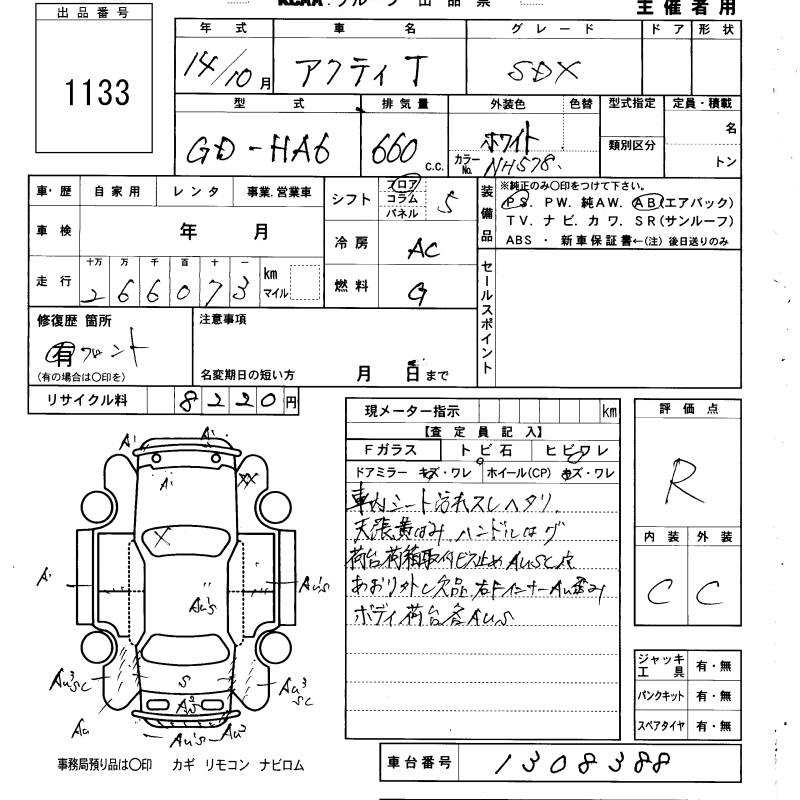 KCAA・グループ 出 品 票
主催者用
出品番号
1133
年 式 車 名 グ レ ー ド ド ア 形 状
14/10月 アクティT SDX
型 式 排気量 外装色 色替 型式指定 定員・積載
GD-HA6 660 c.c. ホワイト 名
カラーNo. NH578. 類別区分 トン
車・歴 自家用 レンタ 事業.営業車
シフト フロア コラム パネル 5
装備品 ※純正のみ〇印をつけて下さい。
PS. PW. 純AW. AB(エアバック)
TV. ナビ. カワ. SR(サンルーフ)
ABS ・ 新車保証書←(注) 後日送りのみ
車検 年 月
冷房 AC
走行 十万 万 千 百 十 一 km マイル
2 6 6 0 7 3
燃料 G
セールスポイント
修復歴 箇所
有 フロント
(有の場合は〇印を)
注意事項
名変期日の短い方 月 日まで
リサイクル料 8 2 2 0 円
現メーター指示 km
【査 定 員 記 入】
Fガラス トビ石 ヒビワレ
ドアミラー キズ・ワレ ホイール(CP) キズ・ワレ
車内シート汚れスレヘタリ
天張黄ばみ ハンドルはゲ
荷台荷箱取付ビス止めAuSC点
あおり外し欠品.右FインナーAu歪み
ボディ荷台各AuS
評 価 点
R
内 装 外 装
C C
ジャッキ工具 有・無
パンクキット 有・無
スペアタイヤ 有・無
A' A'
A' XX
X
A' Au's Au's
Au³ SC S Au³ SC
Au A²S
Au's Au²
事務局預り品は〇印 カギ リモコン ナビロム
車台番号 1308388